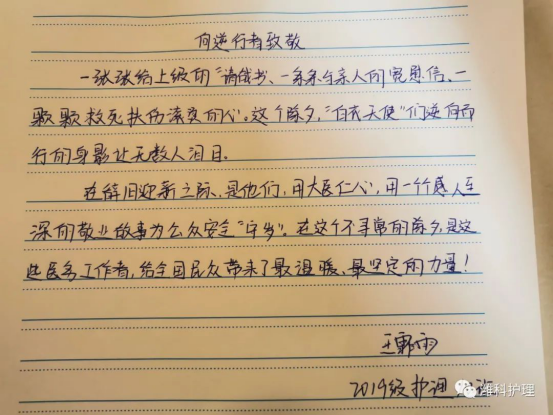 向逆行者致敬
一张张给上级的“请战书、一条条与亲人的宽慰信、一
颗颗救死扶伤滚烫的心。这个除夕,“白衣天使”们逆向而
行的身影让无数人泪目。
在辞旧迎新之际,是他们,用大医仁心,用一个个感人至
深的敬业故事为公众安全“守岁”。在这个不寻常的除夕,是这
些医务工作者,给全国民众带来了最温暖、最坚定的力量!
王郭雨
2019级护理
潍科护理